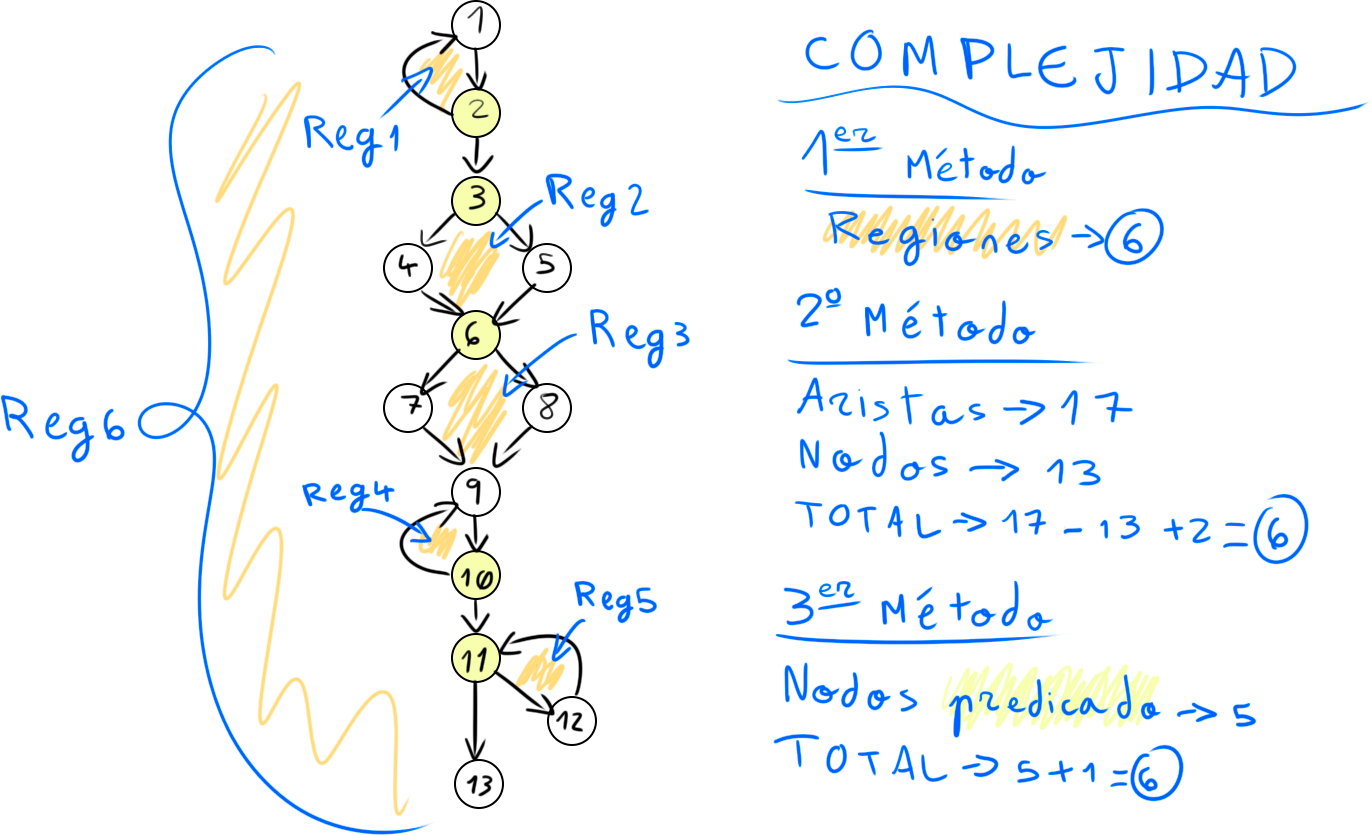 1
Reg1
2
3
Reg2
4
5
6
Reg3
7
8
Reg6
9
Reg4
10
Reg5
11
12
13
COMPLEJIDAD
1er Método
Regiones → 6
2º Método
Aristas → 17
Nodos → 13
TOTAL → 17 - 13 + 2 = 6
3er Método
Nodos predicado → 5
TOTAL → 5 + 1 = 6